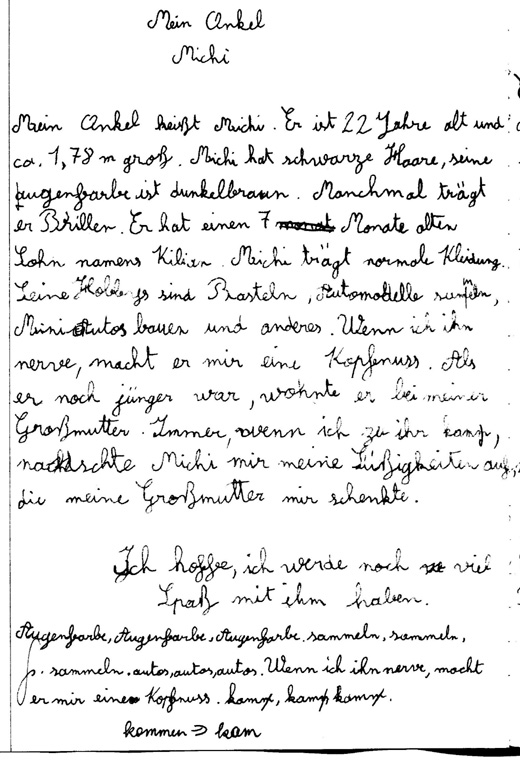 Mein Onkel
Michi
Mein Onkel heißt Michi. Er ist 22 Jahre alt und
ca. 1,78 m groß. Michi hat schwarze Haare, seine
Augenfarbe ist dunkelbraun. Manchmal trägt
er Brillen. Er hat einen 7 Monate alten
Sohn namens Kilian. Michi trägt normale Kleidung.
Seine Hobbeys sind Basteln, Automodelle
Mini Autos bauen und anderes. Wenn ich ihn
nerve, macht er mir eine Kopfenuss. Als
er noch jünger war, wohnte er bei meiner
Großmutter. Immer, wenn ich zu ihr kamp,
naschte Michi mir meine Süßigkeiten auf,
die meine Großmutter mir schenkte.
Ich hoffe, ich werde noch viel
Spaß mit ihm haben.
Augenfarbe, Augenfarbe, Augenfarbe. sammeln, sammeln,
sammeln. autos, autos, autos. Wenn ich ihn nerve, macht
er mir eine Kopfnuss. kam, kam, kam.
kommen ⇒ kam